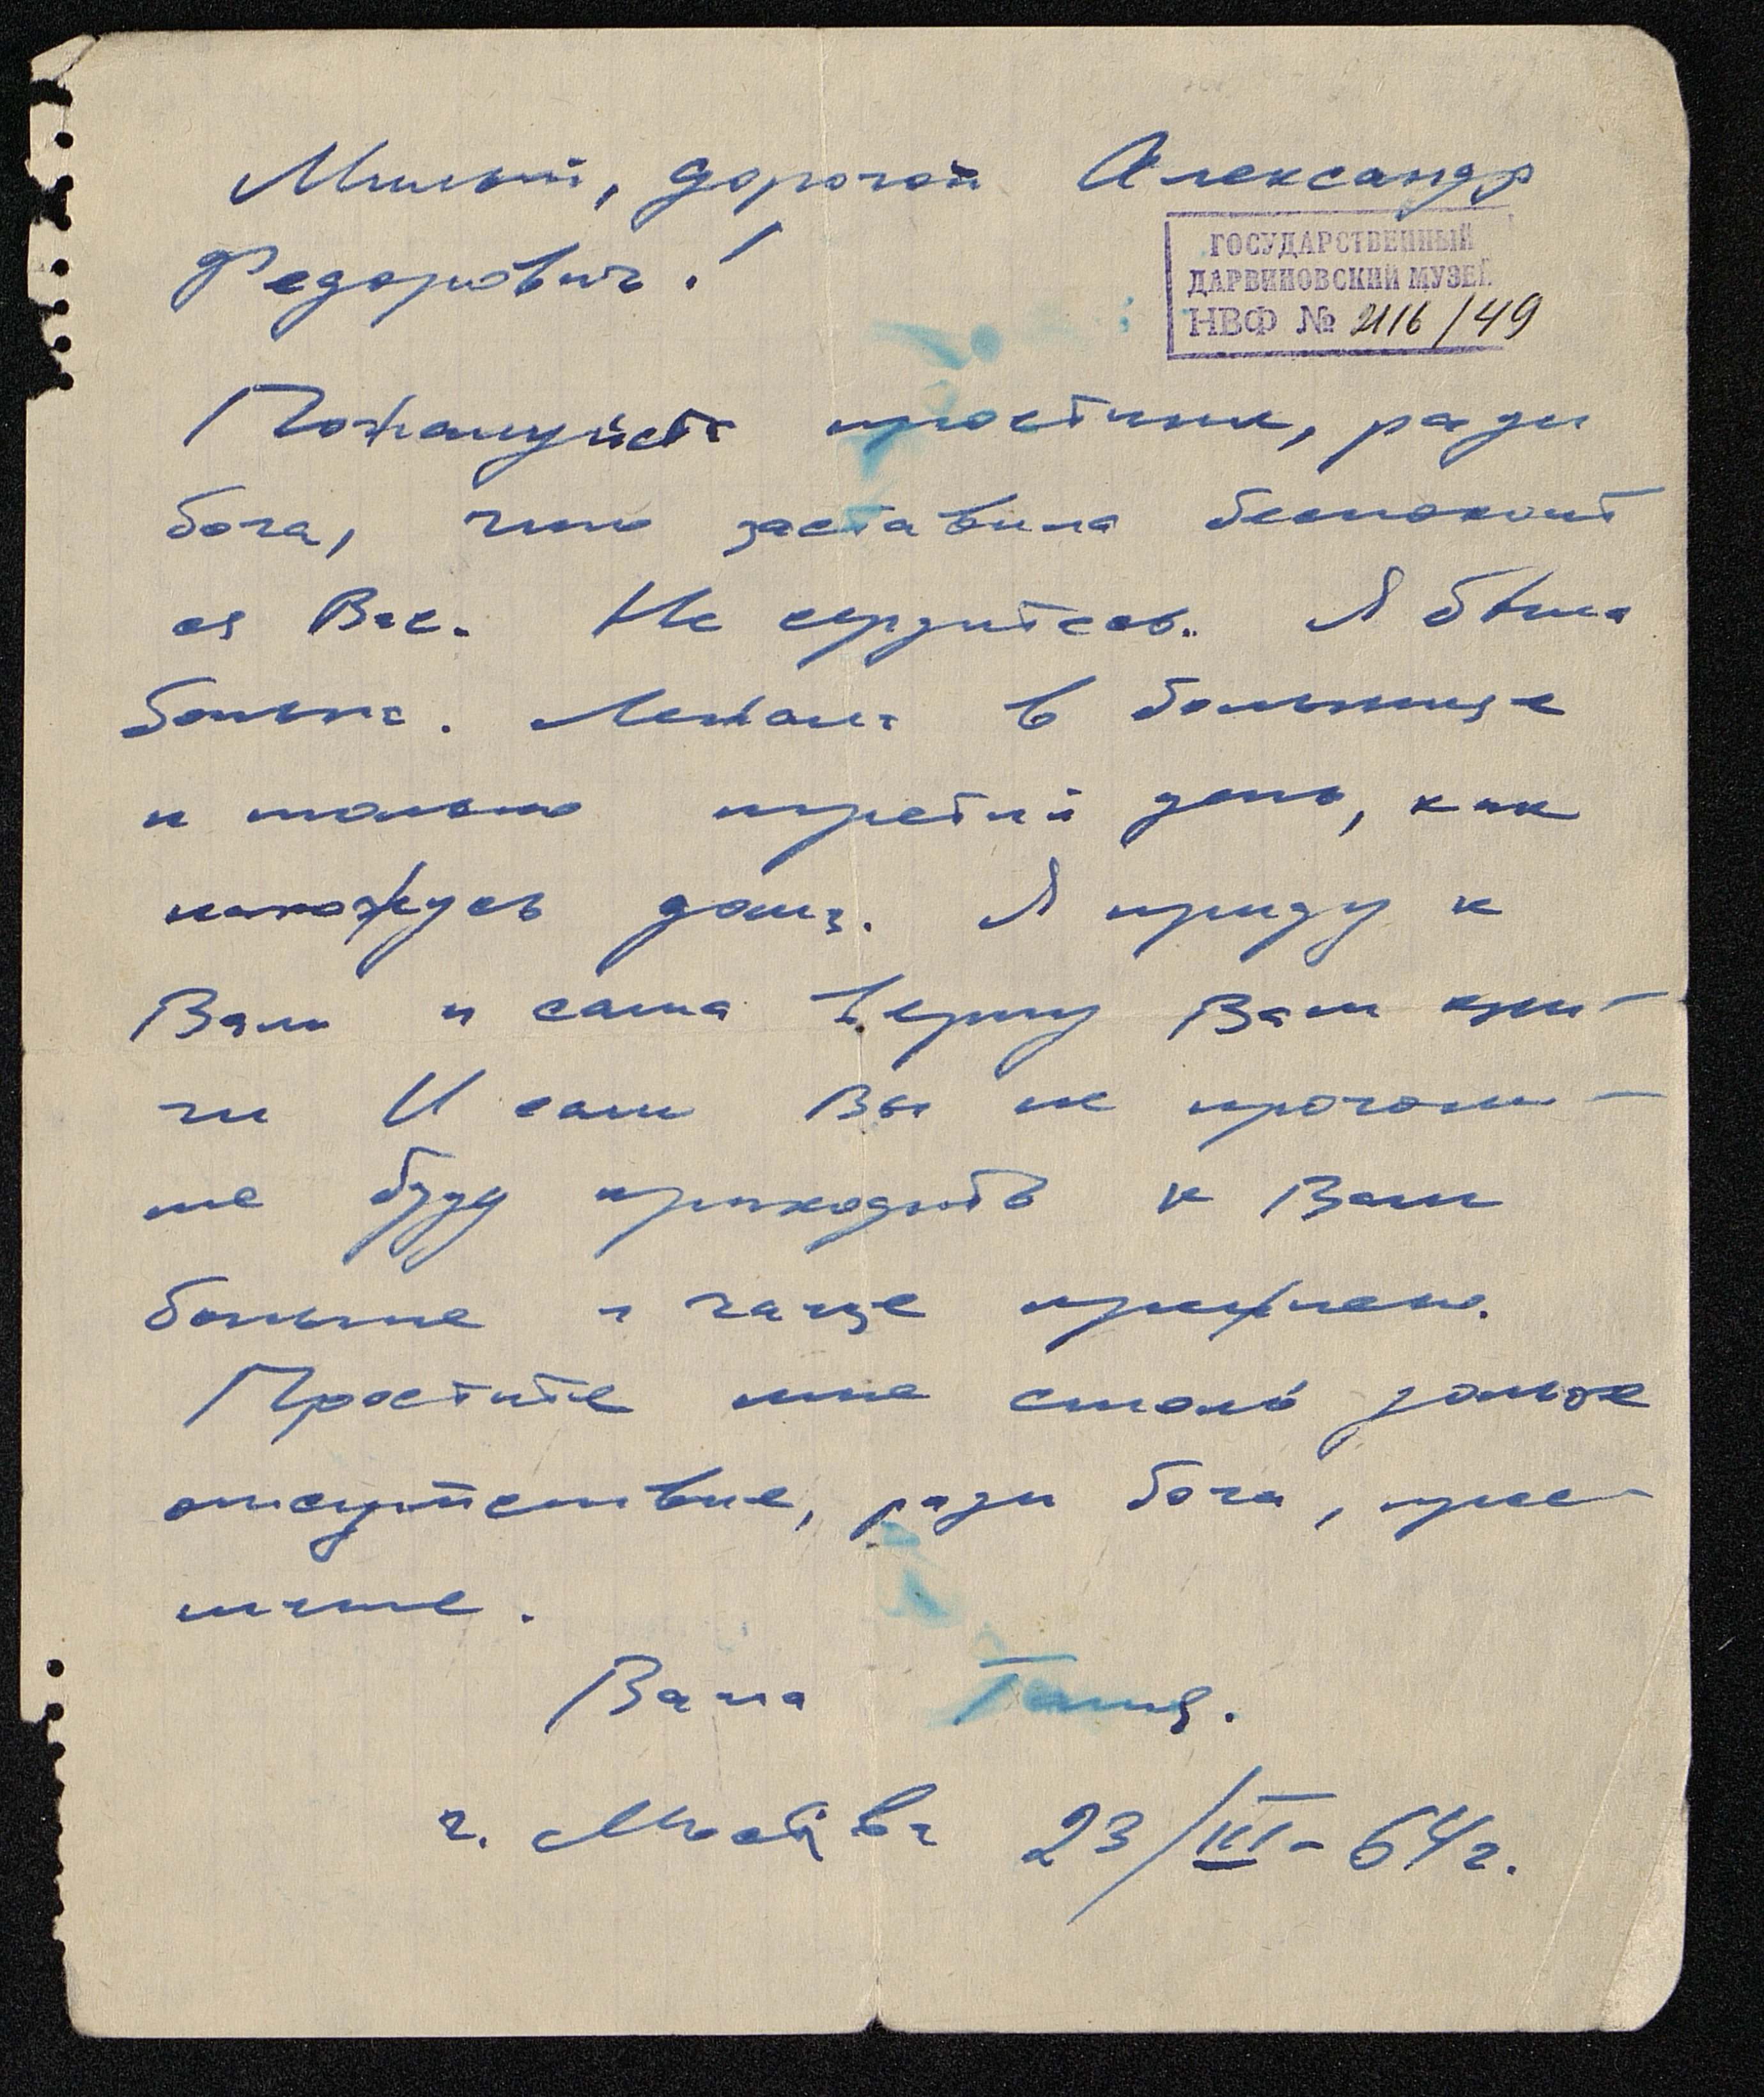 Милый, дорогой Александр
Федорович!
ГОСУДАРСТВЕННЫЙ
ДАРВИНОВСКИЙ МУЗЕЙ
НВФ № 2116/49
Пожалуйста простите, ради
бога, что заставила беспокоит
ся Вас. Не сердитесь. Я была
больна. Лежала в больнице
и только третий день, как
нахожусь дома. Я приду к
Вам и сама верну Вам кни-
ги И если Вы не прогони-
те буду приходить к Вам
больше и чаще прежнего.
Простите мне столь долгое
отсутствие, ради бога, прос-
тите.
Ваша Таня.
г. Москва 23/III-64г.